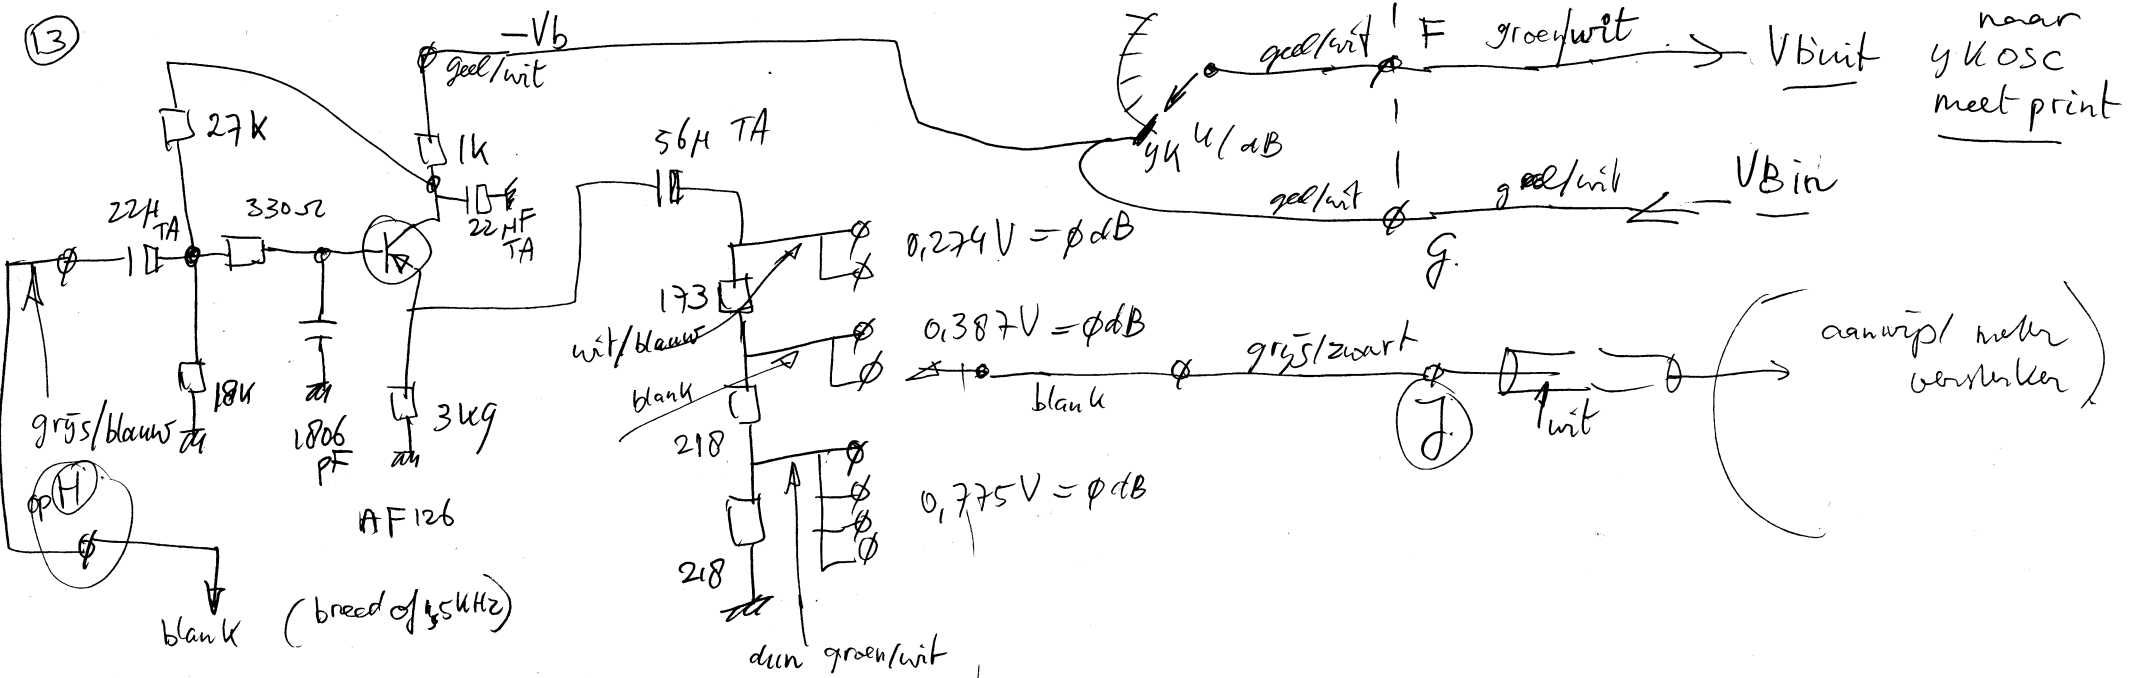 13
-Vb
geel/wit
27K
1K
22µ
TA
330Ω
22µF
TA
56µ TA
18K
1806
pF
3K9
grijs/blauw
op H
blank
AF126
(breed of 1,5KHz)
173
wit/blauw
blank
218
218
dun groen/wit
0,274V = ødB
0,387V = ødB
0,775V = ødB
U/dB
geel/wit F groen/wit
Vbuit
naar
YK OSC
meetprint
geel/wit
G.
geel/wit
VBin
blank
grijs/zwart
J.
wit
meter
versterker